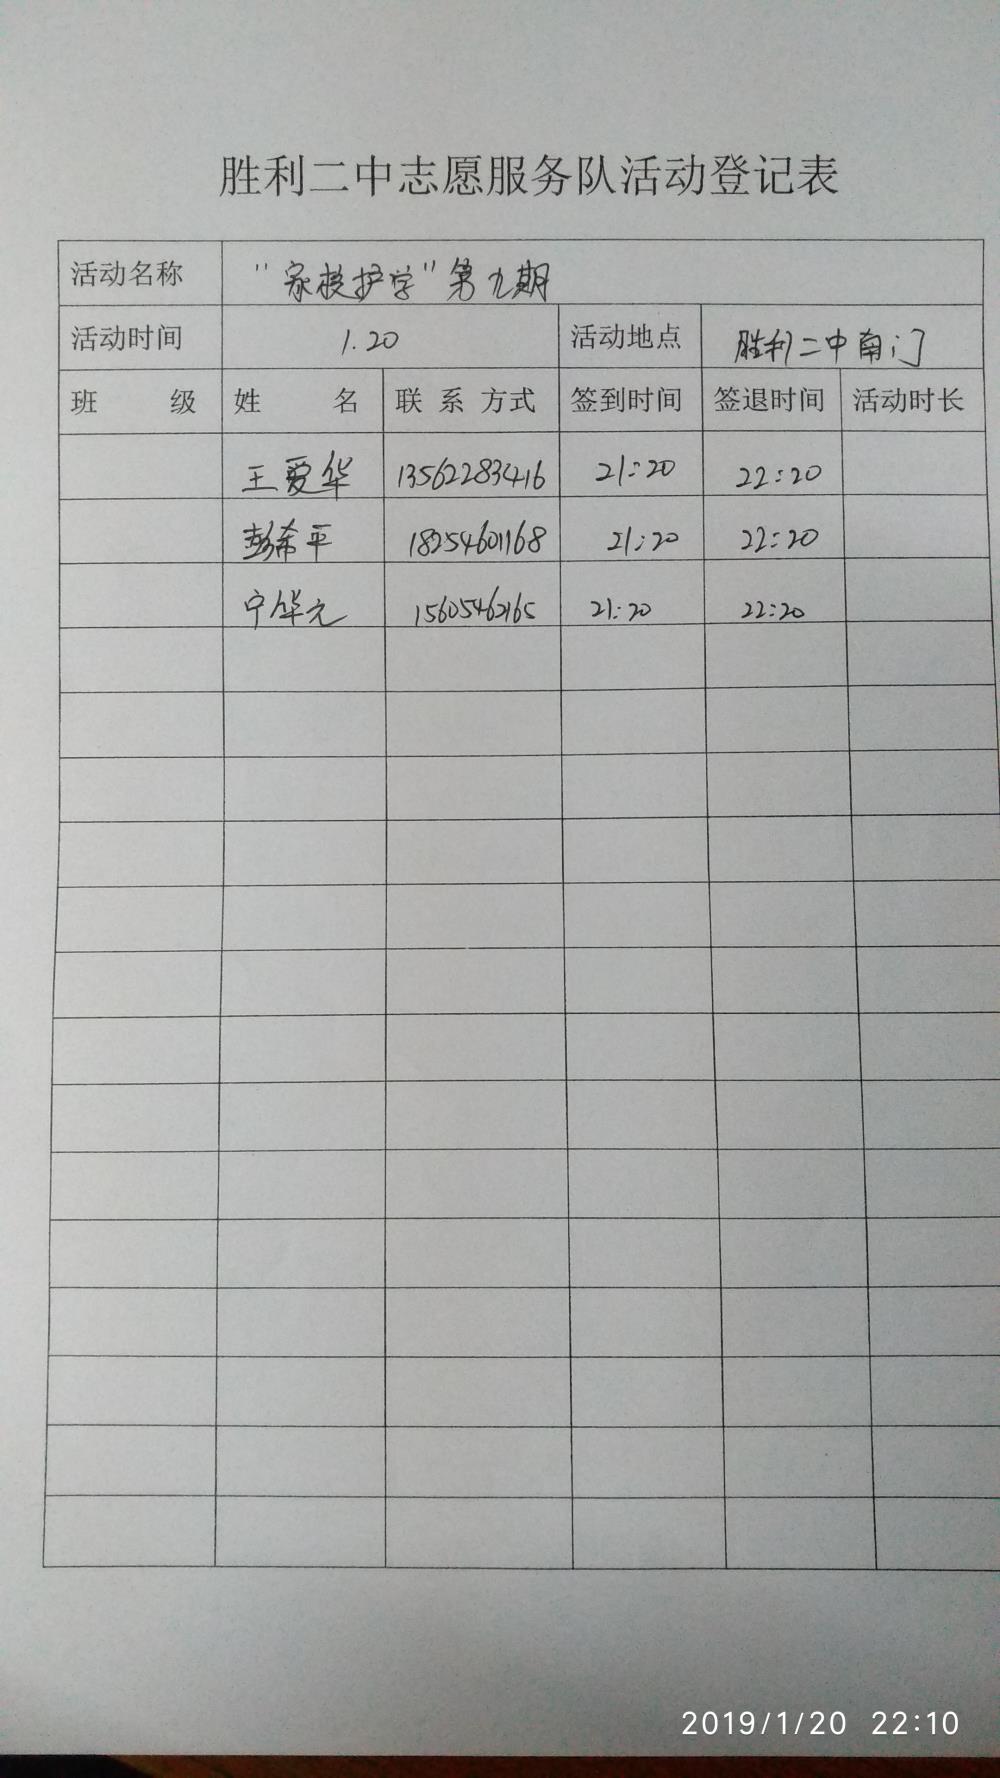 胜利二中志愿服务队活动登记表
活动名称 "家校护学"第九期
活动时间 1.20 活动地点 胜利二中南门
班 级 姓 名 联 系 方式 签到时间 签退时间 活动时长
王爱华 13562283416 21:20 22:20
彭希平 18254601168 21:20 22:20
宁华元 15605462165 21:20 22:20
2019/1/20 22:10